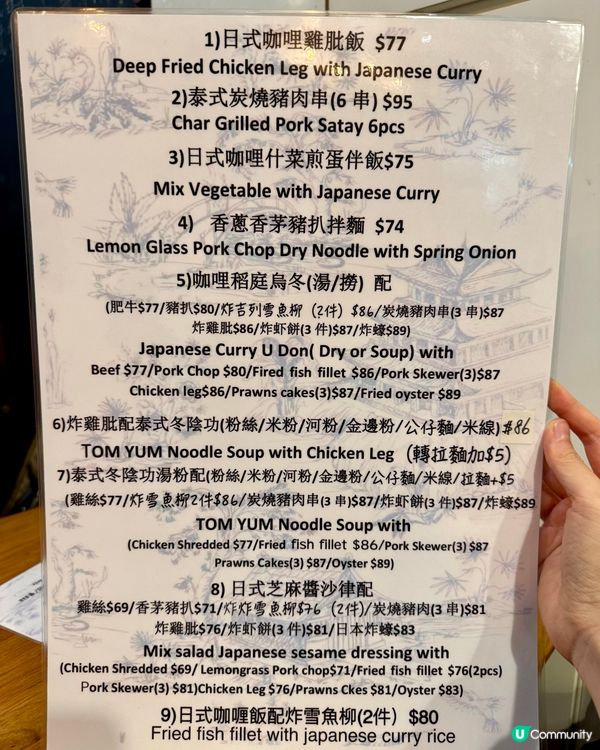 1)日式咖哩雞肶飯 $77
Deep Fried Chicken Leg with Japanese Curry
2)泰式炭燒豬肉串(6 串) $95
Char Grilled Pork Satay 6pcs
3)日式咖哩什菜煎蛋伴飯$75
Mix Vegetable with Japanese Curry
4) 香蔥香茅豬扒拌麵 $74
Lemon Glass Pork Chop Dry Noodle with Spring Onion
5)咖哩稻庭烏冬(湯/撈) 配
(肥牛$77/豬扒$80/炸吉列雪魚柳 (2件) $86/炭燒豬肉串(3 串)$87
炸雞肶$86/炸虾餅(3 件)$87/炸蠔$89)
Japanese Curry U Don( Dry or Soup) with
Beef $77/Pork Chop $80/Fired fish fillet $86/Pork Skewer(3)$87
Chicken leg$86/Prawns cakes(3)$87/Fried oyster $89
6)炸雞肶配泰式冬陰功(粉絲/米粉/河粉/金邊粉/公仔麵/米線) $86
TOM YUM Noodle Soup with Chicken Leg (轉拉麵加$5)
7)泰式冬陰功湯粉配(粉絲/米粉/河粉/金邊粉/公仔麵/米線/拉麵+$5
(雞絲$77/炸雪魚柳2件$86/炭燒豬肉串(3 串)$87/炸虾餅(3 件)$87/炸蠔$89
TOM YUM Noodle Soup with
(Chicken Shredded $77/Fried fish fillet $86/Pork Skewer(3) $87
Prawns Cakes(3) $87/Oyster $89)
8) 日式芝麻醬沙律配
雞絲$69/香茅豬扒$71/炸炸雪魚柳$76 (2件)/炭燒豬肉(3 串)$81
炸雞肶$76/炸虾餅(3 件)$81/日本炸蠔$83
Mix salad Japanese sesame dressing with
(Chicken Shredded $69/ Lemongrass Pork chop$71/Fried fish fillet $76(2pcs)
Pork Skewer(3) $81)Chicken Leg $76/Prawns Ckes $81/Oyster $83)
9)日式咖喱飯配炸雪魚柳(2件) $80
Fried fish fillet with japanese curry rice
U Community